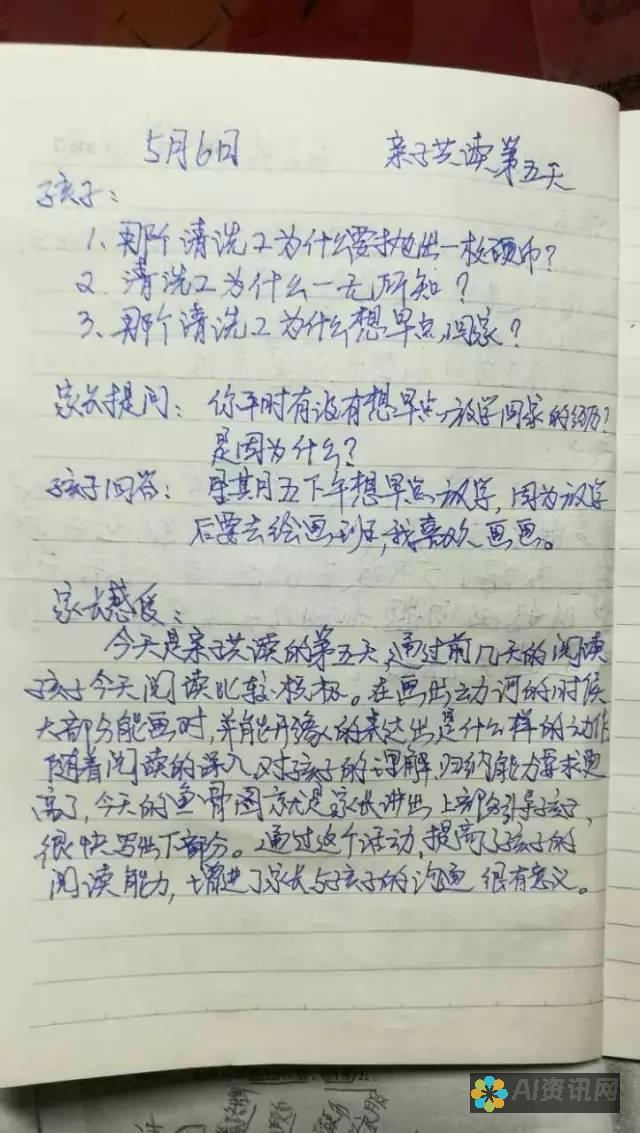 5月6日 亲子共读第五天
孩子：
1、那个清洗工为什么要抛出一枚硬币？
2、清洗工为什么一无所知？
3、那个清洗工为什么想早点回家？
家长提问：你平时有没有想早点放学回家的经历？
是因为什么？
孩子回答：星期五下午想早点放学，因为放学
后要去绘画班，我喜欢画画。
家长感受：
今天是亲子共读的第五天，通过前几天的阅读
孩子今天阅读比较积极。在画出动词的时候
大部分能画对，并能形象的表达出是什么样的动作
随着阅读的深入，对孩子的理解、归纳能力要求更
高了，今天的鱼骨图就是家长讲出上部分引导孩子，
很快写出下部分。通过这个活动，提高了孩子的
阅读能力，增进了家长与孩子的沟通 很有意义。
AI资讯网